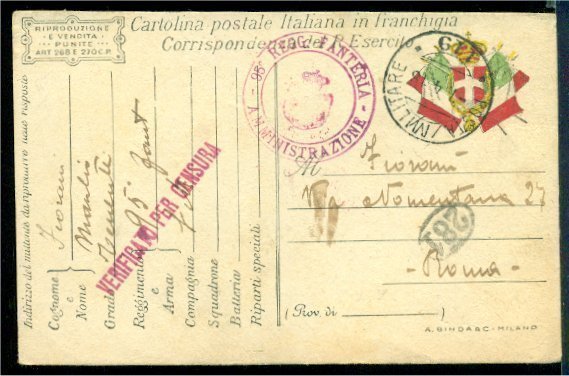 RIPRODUZIONE
E VENDITA
PUNITE
ART 268 E 270 C.P.
Cartolina postale Italiana in franchigia
Corrispondenza del R. Esercito
95° REGG. FANTERIA
AMMINISTRAZIONE
MILITARE
VERIFICATO PER CENSURA
Indirizzo del mittente da riprodurre nelle risposte
Cognome e Nome
Fiorani
Manlio
Grado
Tenente
Reggimento e Arma
95° fant
Compagnia
Squadrone
Batteria
Riparti speciali
Fiorani
Via Nomentana 27
Roma
(Prov. di )
A. BINDA & C - MILANO